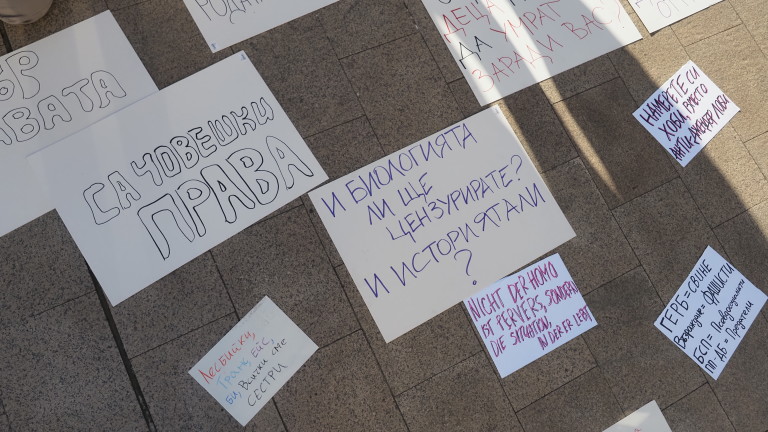 АВАТА
СА ЧОВЕШКИ
ПРАВА
ДЕЦА
ДА УМРАТ
ЗАРАДИ ВАС?
НАМЕРЕТЕ СИ
ХОБИ, ВМЕСТО
АНТИ-ДЖЕНДЪР ЛОБИ
И БИОЛОГИЯТА
ЛИ ЩЕ
ЦЕНЗУРИРАТЕ?
И ИСТОРИЯТА ЛИ
?
NICHT DER HOMO
IST PERVERS, SONDERN
DIE SITUATION,
IN DER ER LEBT
ГЕРБ = СВИНЕ
Възраждане = ФАШИСТИ
БСП = Псевдосоциалисти
ПП-ДБ = Предатели
Лесбийки,
Транс, ейс,
Би, Всички сме
СЕСТРИ